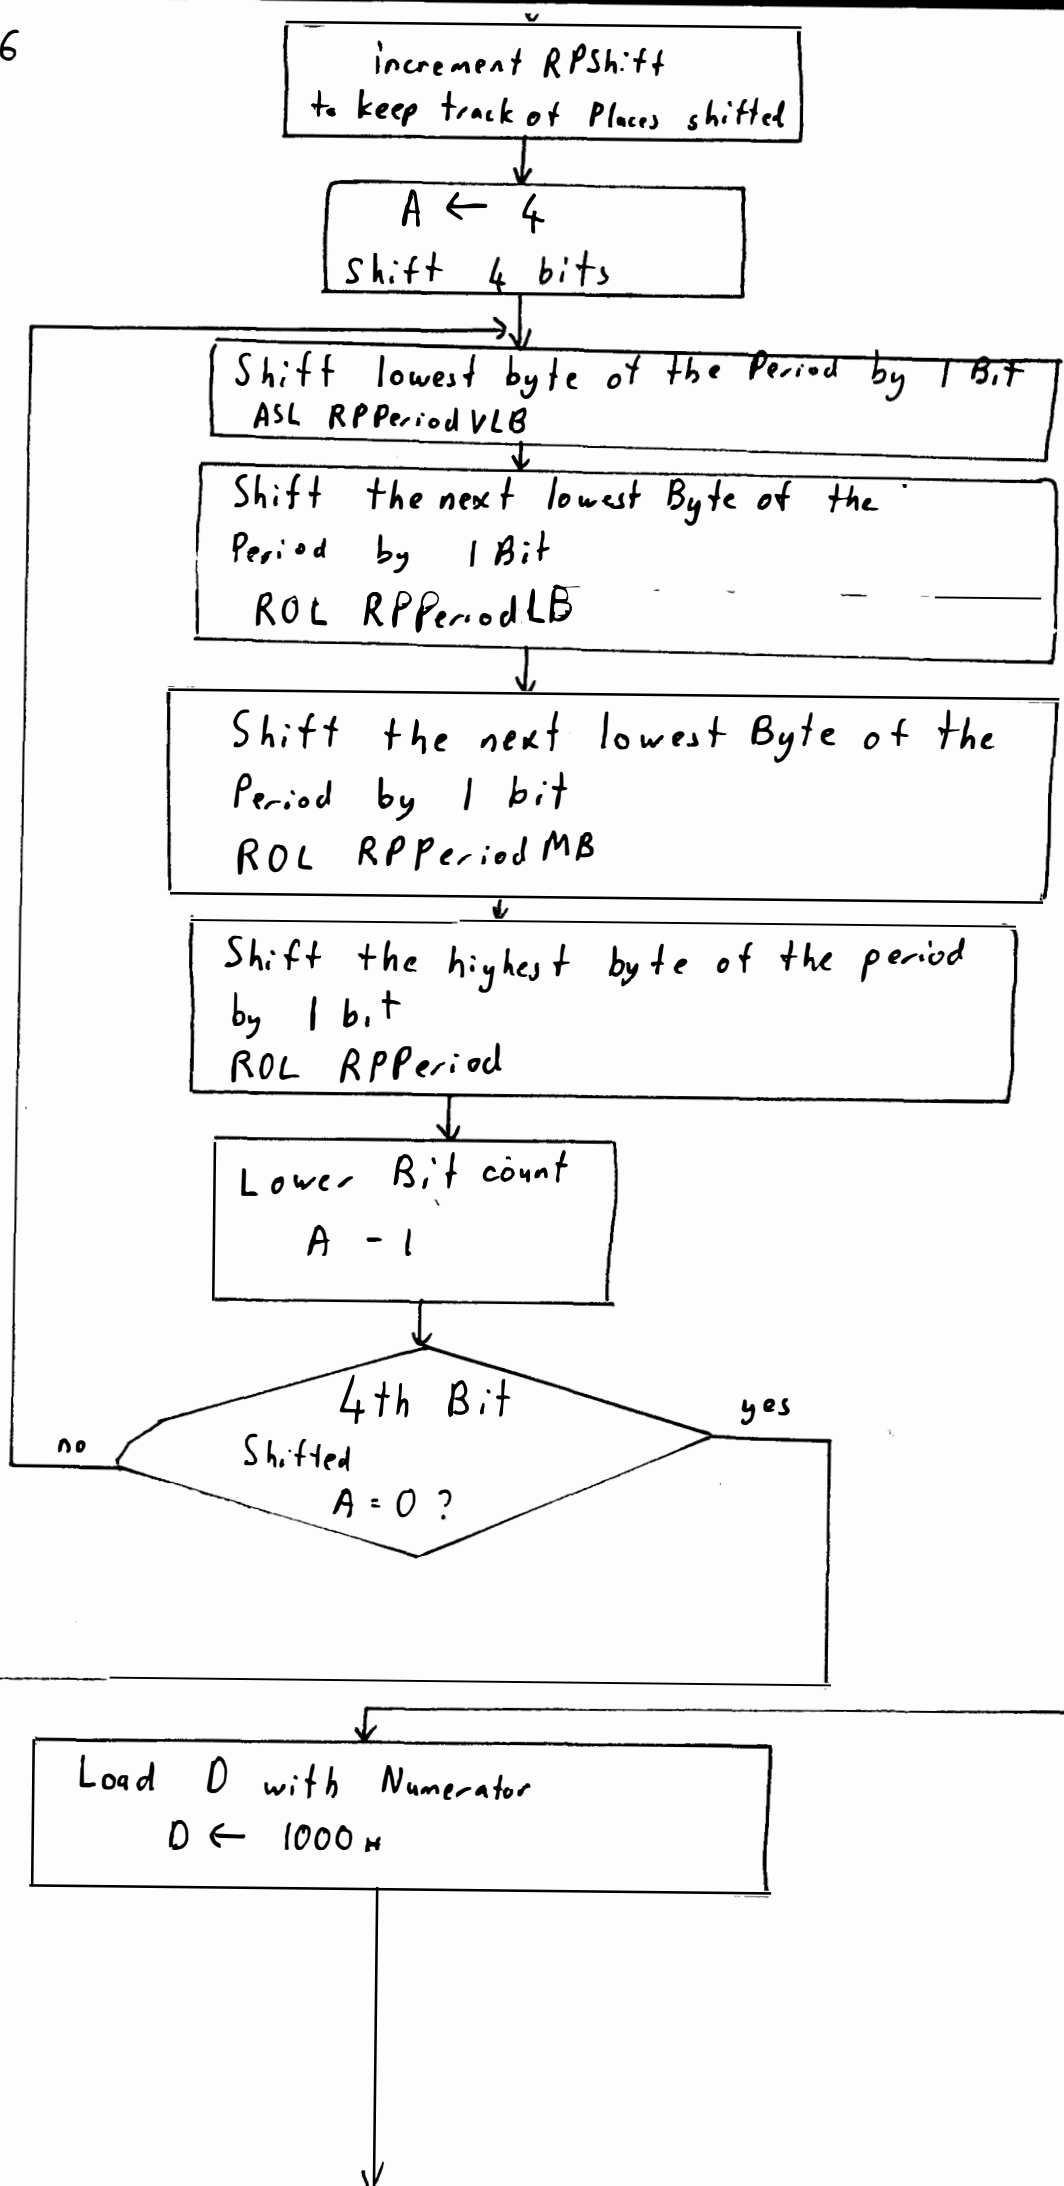 6
increment RPShift
to keep track of Places shifted
A ← 4
Shift 4 bits
Shift lowest byte of the Period by 1 Bit
ASL RPPeriodVLB
Shift the next lowest Byte of the
Period by 1 Bit
ROL RPPeriodLB
Shift the next lowest Byte of the
Period by 1 bit
ROL RPPeriodMB
Shift the highest byte of the period
by 1 bit
ROL RPPeriod
Lower Bit count
A - 1
4th Bit
Shifted
A = 0 ?
yes
no
Load D with Numerator
D ← 1000H